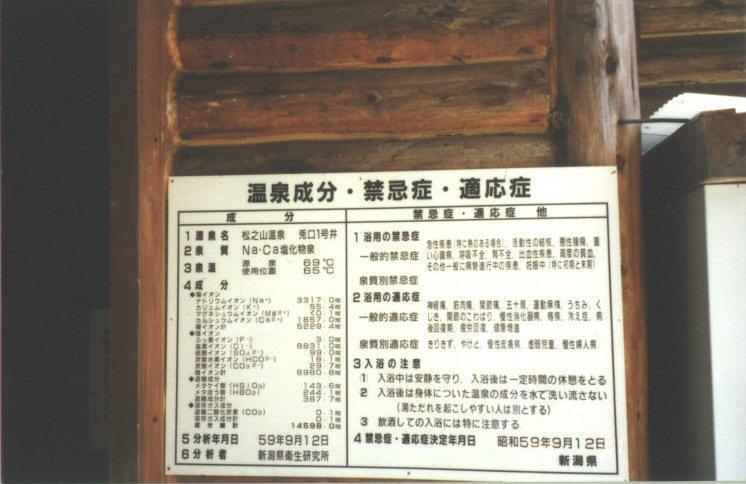 温泉成分・禁忌症・適応症
成分
1 源泉名 松之山温泉 兎口1号井
2 泉質 Na-Ca塩化物泉
3 泉温 源泉 69℃
使用位置 65℃
4 成分
◆陽イオン
ナトリウムイオン(Na⁺) 3317.0
カリュムイオン(K⁺) 55.4
マグネシュウムイオン(Mg²⁺) <0.1
カルシュウムイオン(Ca²⁺) 1857.0
陽イオン計 5229.4
◆陰イオン
ふっ素イオン(F⁻) 3.0
塩素イオン(Cl⁻) 8831.0
硫酸イオン(SO₄²⁻) 99.0
炭酸水素イオン(HCO³⁻) 18.1
炭酸イオン(CO₃²⁻) 29.7
陰イオン計 8980.8
◆遊離成分
メタケイ酸(HSiO₃) 143.6
メタほう酸(HBO₂) 244.1
遊離成分計 387.7
◆溶存ガス成分
遊離二酸化炭素(CO₂) 0.1
溶存ガス成分計 0.1
成分総計 14598.0
5 分析年月日 59年9月12日
6 分析者 新潟県衛生研究所
禁忌症・適応症 他
1 浴用の禁忌症
一般的禁忌症 急性疾患(特に熱のある場合)、活動性の結核、悪性腫瘍、重
い心臓病、呼吸不全、腎不全、出血性疾患、高度の貧血、
その他一般に病勢進行中の疾患、妊娠中(特に初期と末期)
泉質別禁忌症
2 浴用の適応症
一般的適応症 神経痛、筋肉痛、関節痛、五十肩、運動麻痺、うちみ、く
じき、関節のこわばり、慢性消化器病、痔疾、冷え症、病
後回復期、疲労回復、健康増進
泉質別適応症 きりきず、やけど、慢性皮膚病、虚弱児童、慢性婦人病
3 入浴の注意
1 入浴中は安静を守り、入浴後は一定時間の休憩をとる
2 入浴後は身体についた温泉の成分を水で洗い流さない
(湯ただれを起こしやすい人は別とする)
3 飲酒しての入浴には特に注意する
4 禁忌症・適応症決定年月日 昭和59年9月12日
新潟県